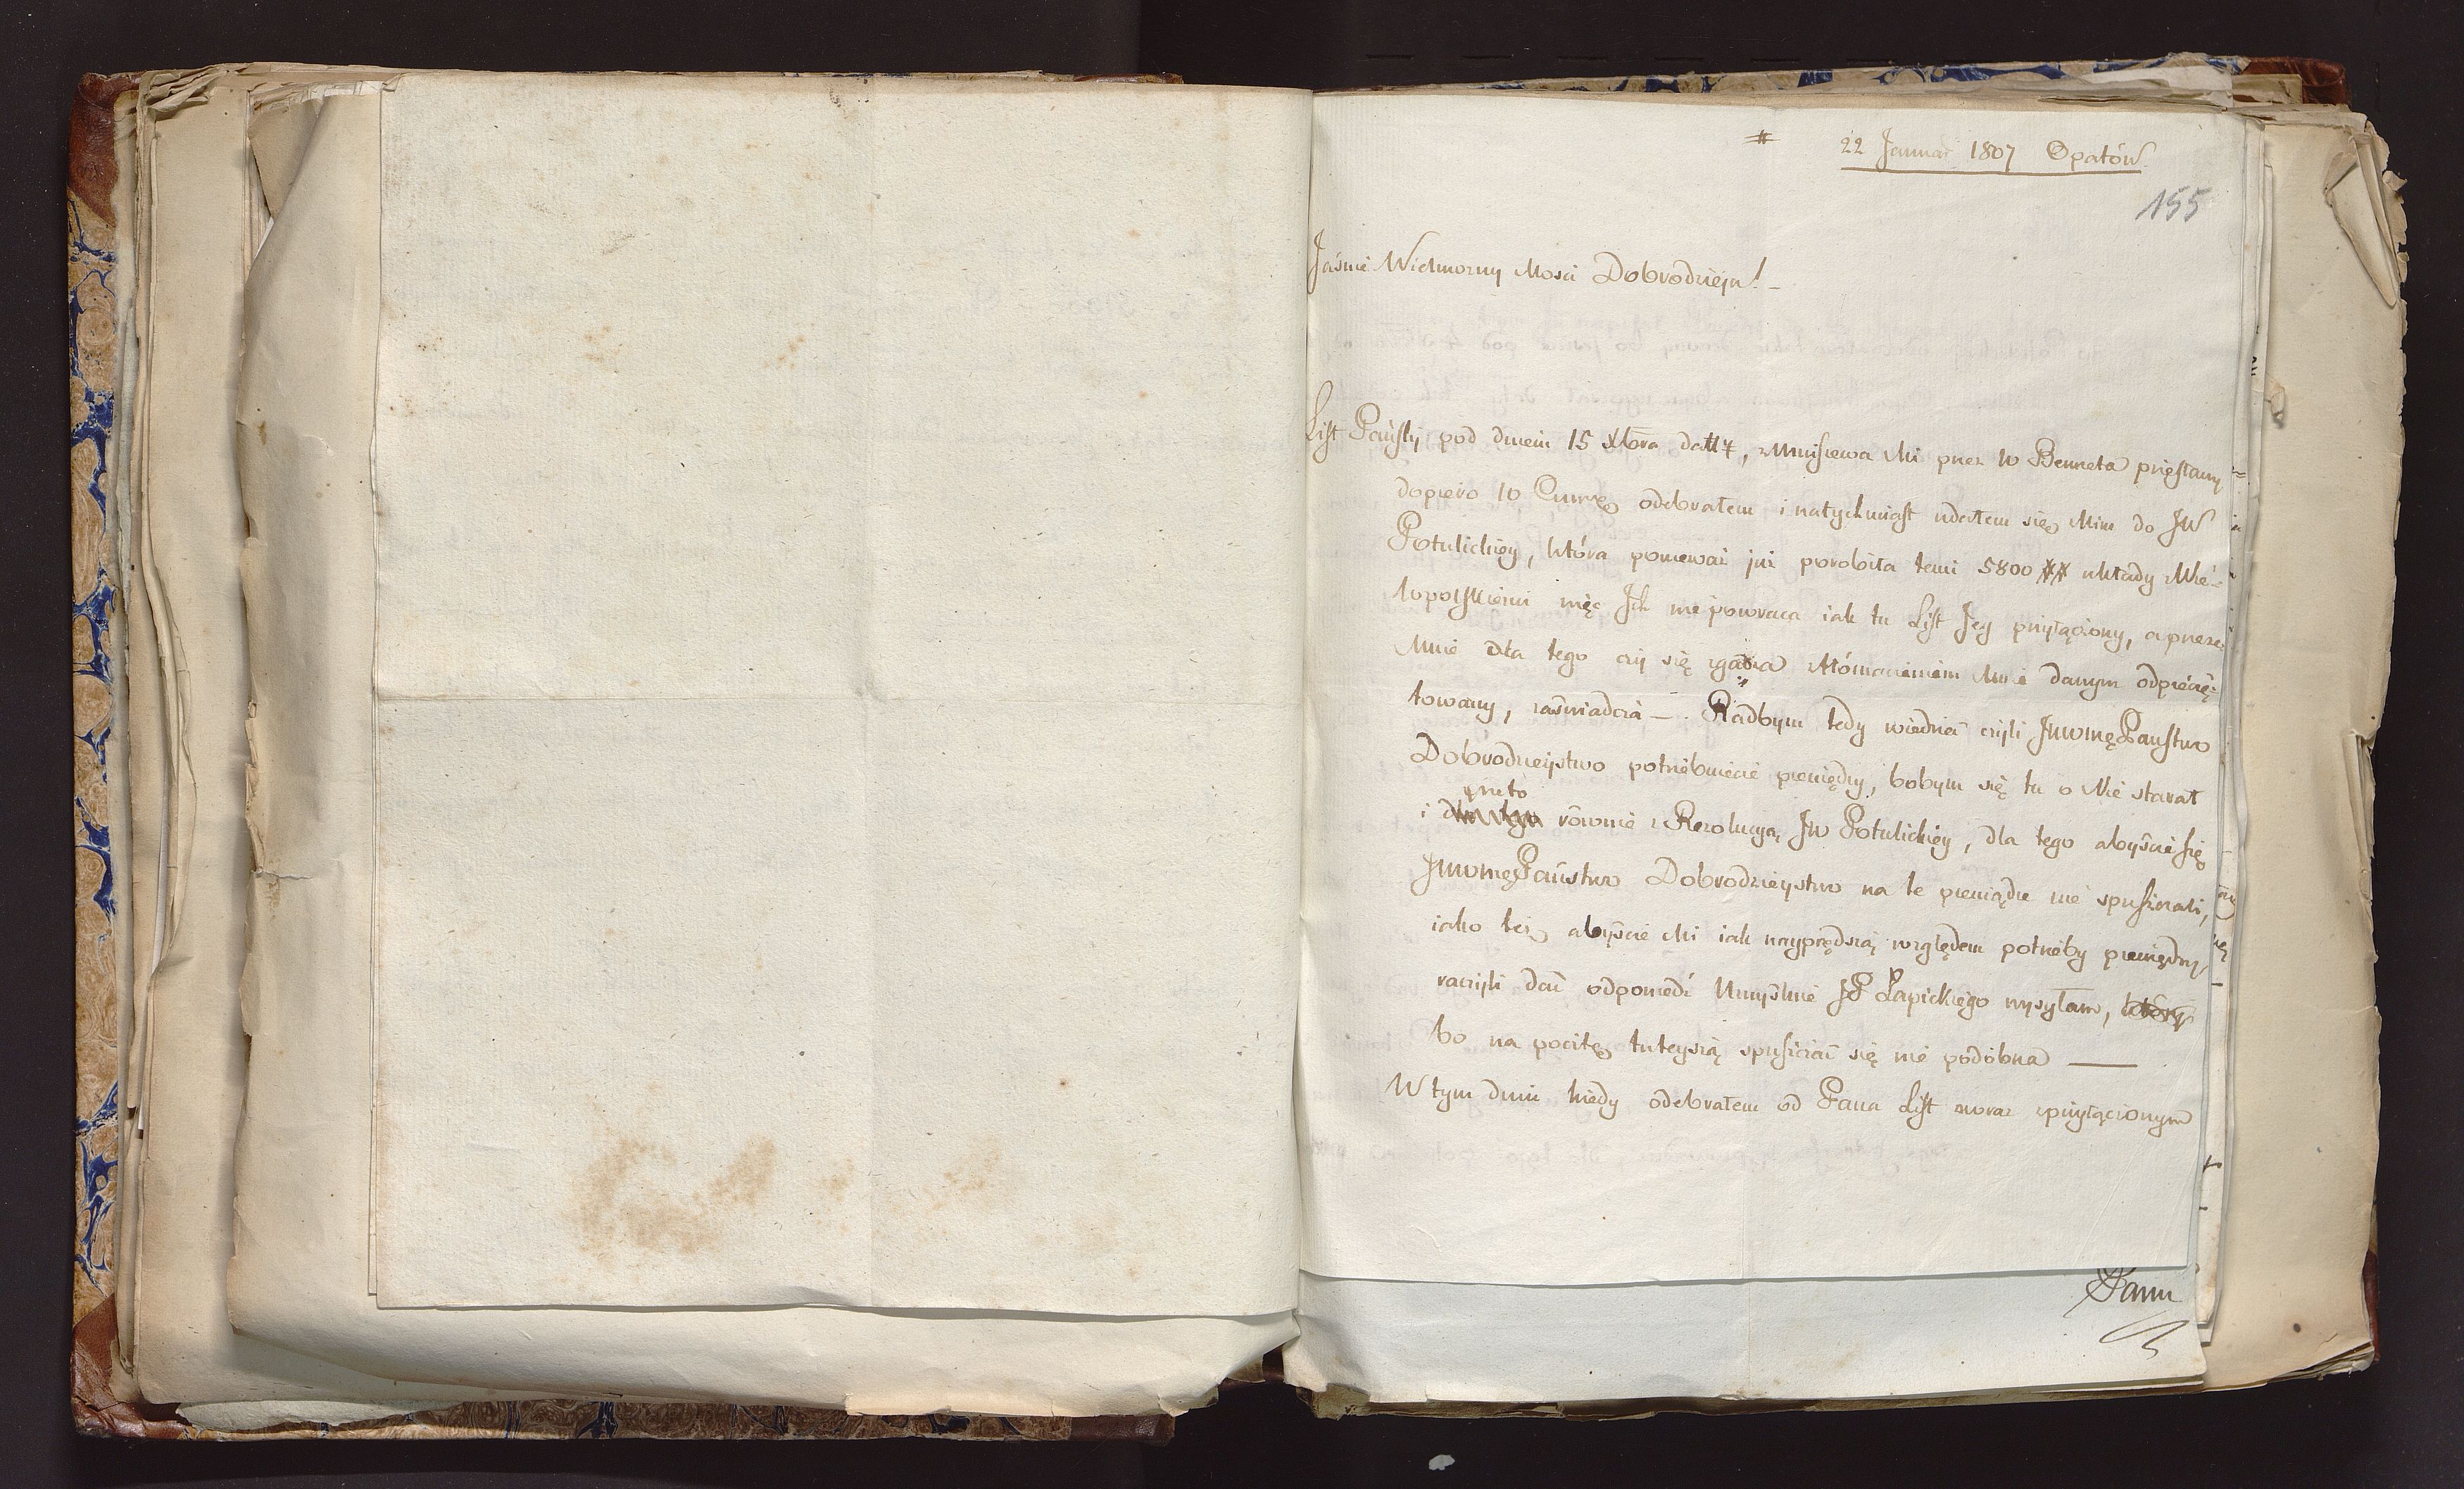 # 22 Januar 1807 Opatów.
155
Jaśnie Wielmorny Mości Dobrodzieju! –
List Pański pod dniem 15 Xbra datt, z Mniszewa Mi przez W Benneta przysłany
dopiero 10 odebrałem i natychmiast udałem się Mim do JW
Potulickiey, która ponieważ już porobiła temi 5800 układy z Wie-
lopolskiemi więc Ich nie powraca iak tu List Jey przyłączony, a przeze
Mnie dla tego czy się zgadza z tłómaczeniem Mnie danym odpieczę-
towany, zaświadcza –. Radbym tedy wiedzieć czyli JWWMę Państwo
Dobrodzieystwo potrzebuiecie pieniędzy, bobym się tu o Nie starał
przeto
i dla tego równie z Rezolucyą JW Potulickiey, dla tego abyście się
JWWMę Państwo Dobrodzieystwo na te pieniądze nie spuszczali,
iako też abyście Mi iak nayprędszą względem potrzeby pieniędzy
raczyli dać odpowiedź Umyślnie JP Łapickiego wysyłam, który
bo na pocztę tuteyszą spuszczać się nie podobna —
W tym dniu kiedy odebrałem od Pana List wraz z przyłączonym
Panu